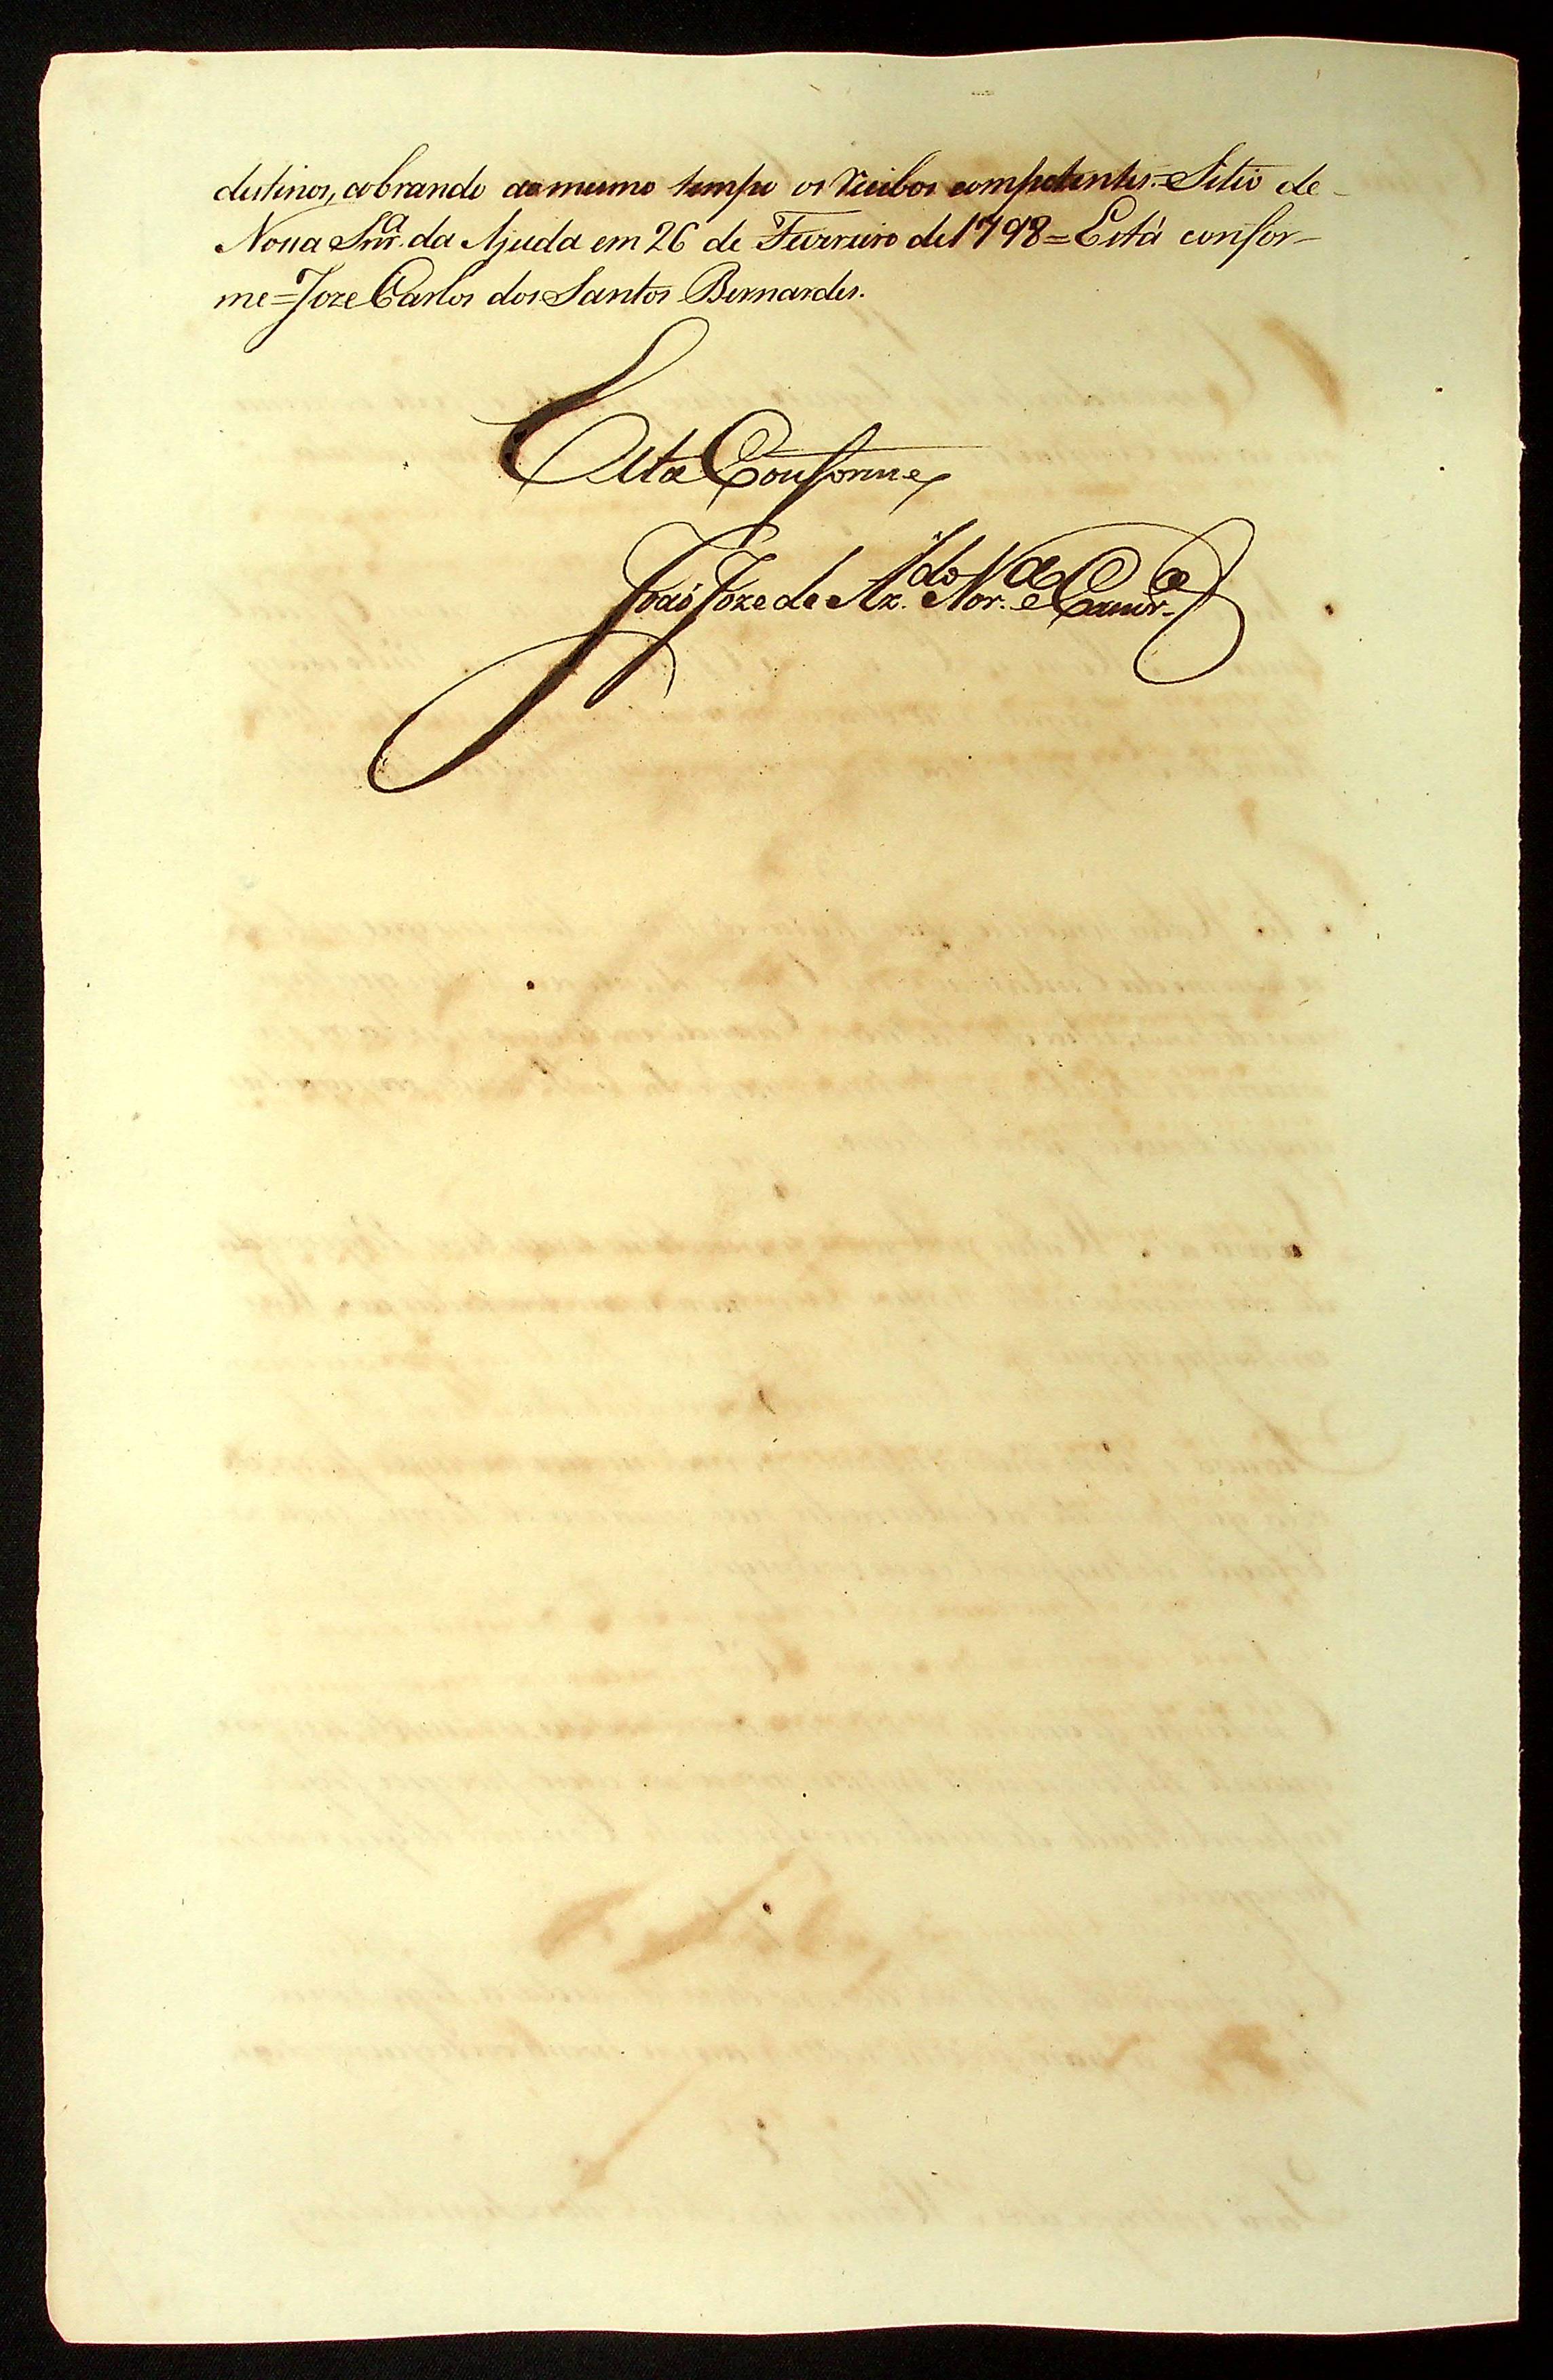 destinos, cobrando ao mesmo tempo os recibos competentes.=Sitio de-
Nossa Snr.ª da Ajuda em 26 de Fevereiro de 1798=Está confor-
me=Joze Carlos dos Santos Bernardes.
Está Conforme
João Joze de Az.do Nor.ª e Camr.ª